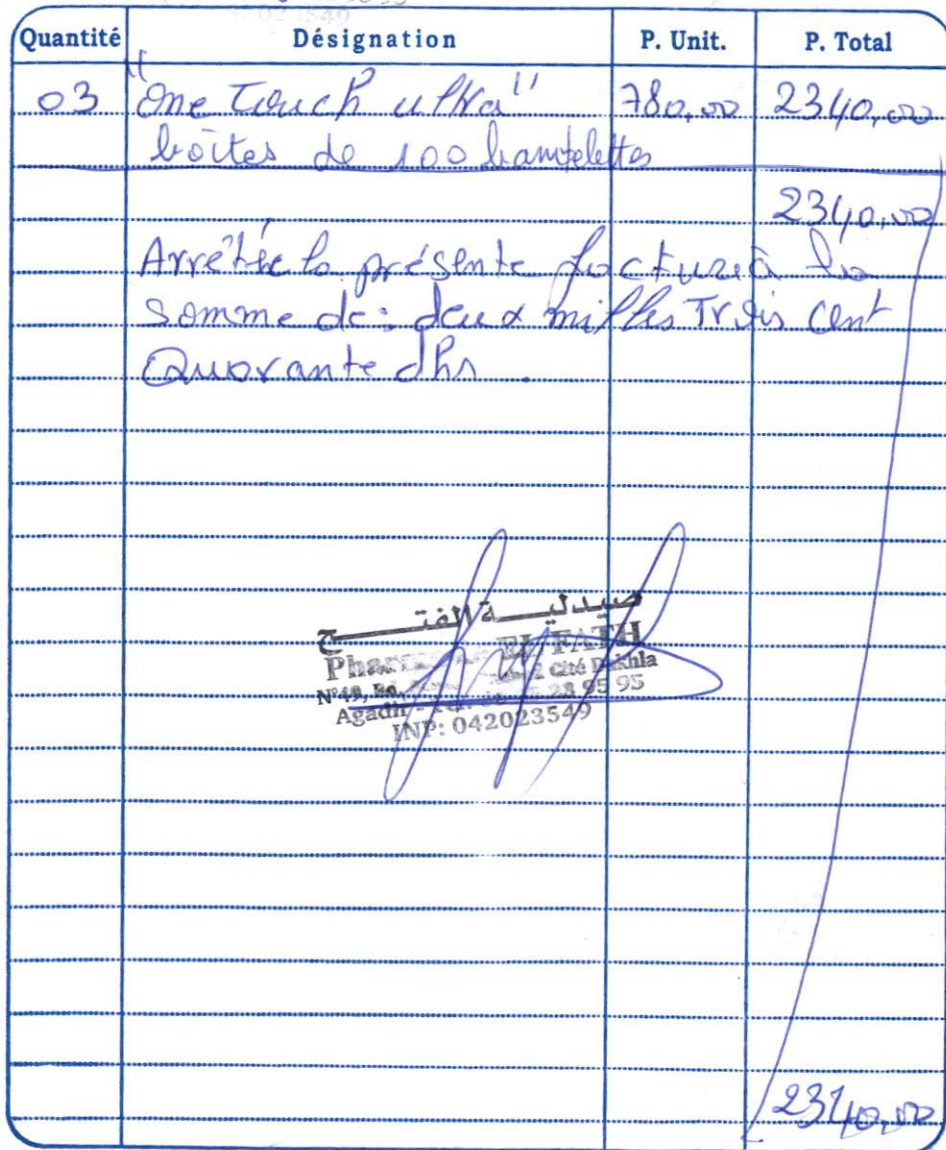 023549
Quantité Désignation P. Unit. P. Total
03 "One Touch ultra" 780,00 2340,00
boîtes de 100 bandelettes
2340,00
Arrêtée la présente facture à la
somme de: deux milles Trois cent
Quarante dhs.
صيدلية الفتح
Pharmacie EL FATH
N°49, Bd. Cité Dakhla
Agadir 28 95 95
INP: 042023549
2340,00